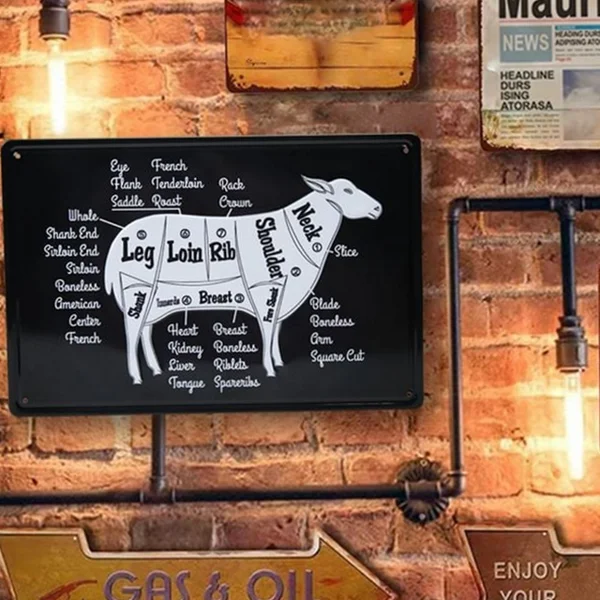 Mauri
NEWS
HEADING DURS
ADIPISING ATO
HEADLINE
DURS
ISING
ATORASA
Eye French
Flank Tenderloin
Saddle Roast
Rack
Crown
Whole
Shank End
Sirloin End
Sirloin
Boneless
American
Center
French
5 Leg
6 Loin
7 Rib
Shoulder 2
Neck 1
Slice
Shank
Innards 4
Breast 3
Fore Shank
Blade
Boneless
Arm
Square Cut
Heart
Kidney
Liver
Tongue
Breast
Boneless
Riblets
Spareribs
GAS & OIL
ENJOY
YOUR